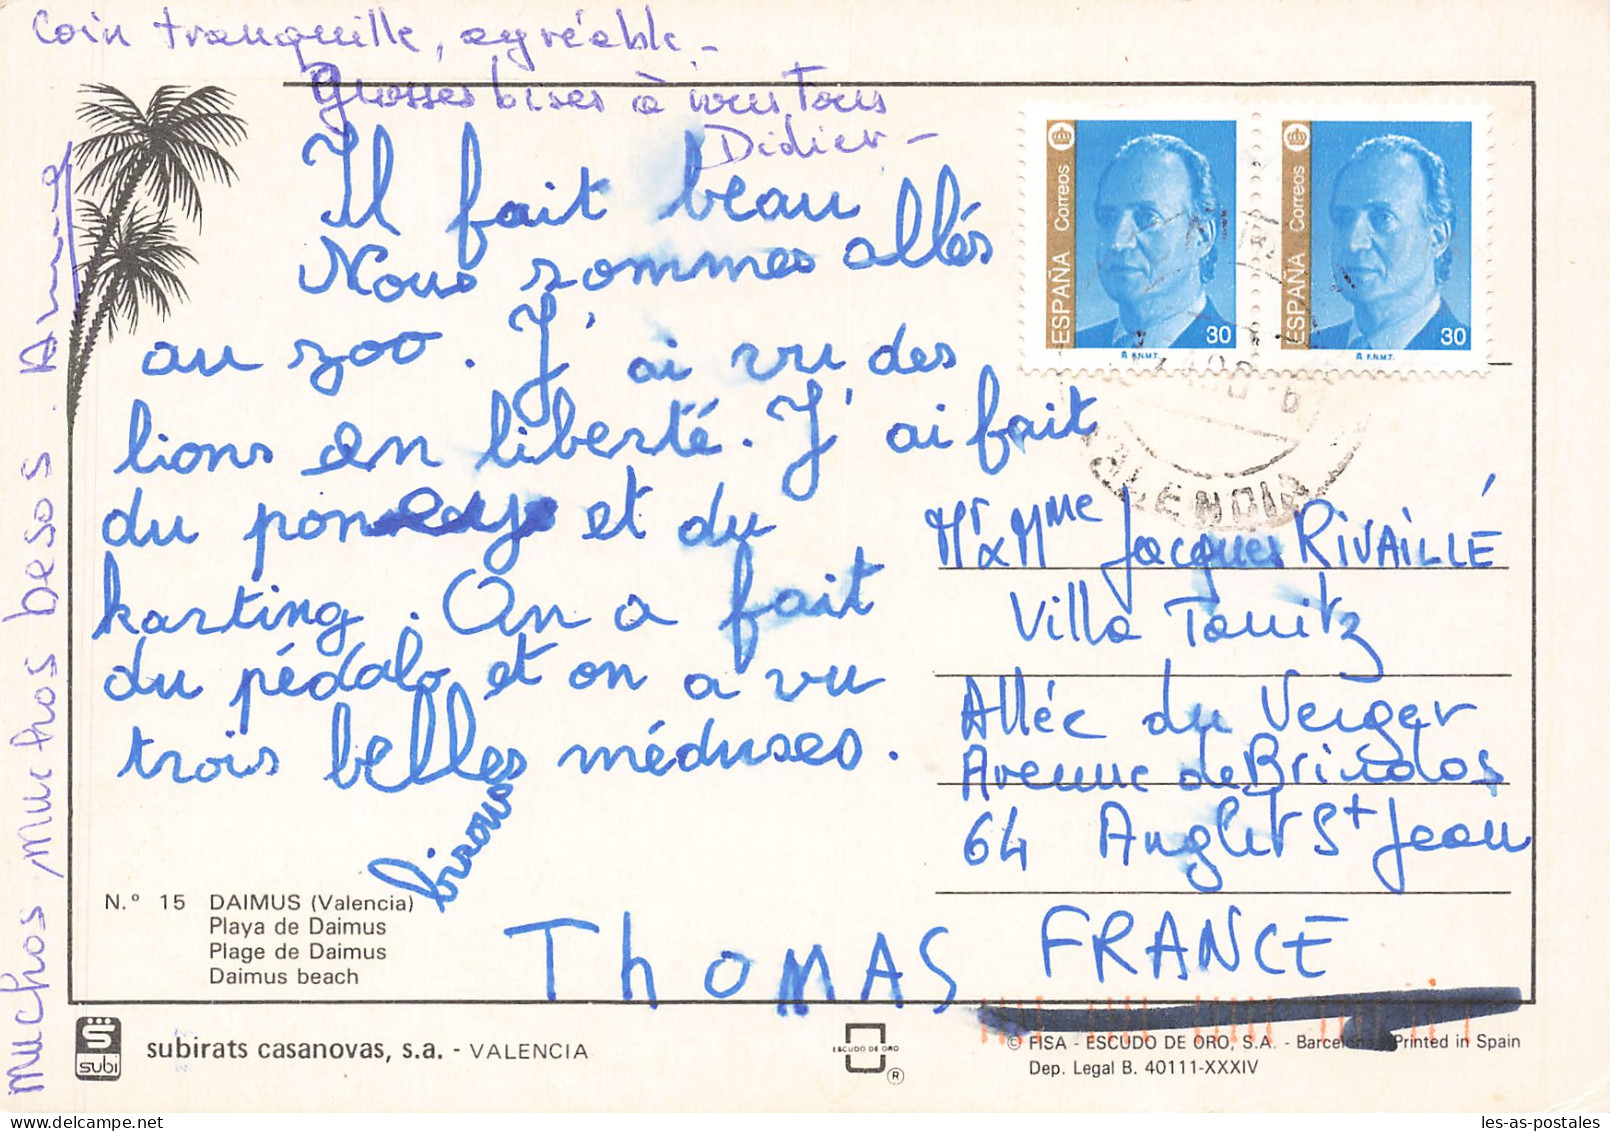 Coin tranquille, agréable -
Grosses bises à vous Tous
Didier -
Il fait beau
Nous sommes allés
au zoo. J'ai vu des
lions en liberté. J'ai fait
du poney et du
karting. On a fait
du pédalo et on a vu
trois belles méduses.
bisous
THOMAS
muchos muchos besos.
ESPAÑA Correos
30
F.N.M.T.
ESPAÑA Correos
30
F.N.M.T.
VALENCIA
Mr & Mme Jacques RIVAILLÉ
Villa Tanitz
Allée du Verger
Avenue de Brindos
64 Anglet St Jean
FRANCE
N.º 15 DAIMUS (Valencia)
Playa de Daimus
Plage de Daimus
Daimus beach
subi
subirats casanovas, s.a. - VALENCIA
ESCUDO DE ORO
®
© FISA - ESCUDO DE ORO, S.A. - Barcelona Printed in Spain
Dep. Legal B. 40111-XXXIV
les-as-postales